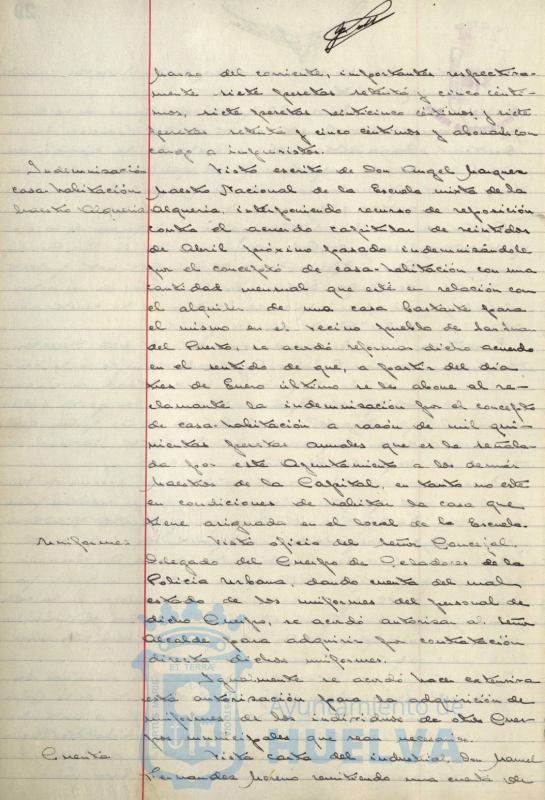 Marzo del corriente, importantes respectiva-
mente siete pesetas setenta y cinco cénti-
mos, siete pesetas veinticinco céntimos y siete
pesetas setenta y cinco céntimos y abonados con
cargo a imprevistos.
Indemnización
casa habitación
Maestro Alqueria
Visto escrito de Don Angel Marquez
Maestro Nacional de la Escuela mixta de la
Alqueria, interponiendo recurso de reposición
contra el acuerdo capitular de veintidos
de Abril próximo pasado indemnizándole
por el concepto de casa-habitación con una
cantidad mensual que esté en relación con
el alquiler de una casa bastante para
el mismo en el vecino pueblo de San Juan
del Puerto, se acordó reformar dicho acuerdo
en el sentido de que, a partir del día
tres de Enero último se le abone al re-
clamante la indemnización por el concepto
de casa-habitación a razón de mil qui-
nientas pesetas anuales que es la señala-
da por este Ayuntamiento a los demás
Maestros de la Capital, en tanto no esté
en condiciones de habitar la casa que
tiene asignada en el local de la Escuela.
Uniformes
Visto oficio del Señor Concejal
Delegado del Cuerpo de Celadores de la
Policía Urbana, dando cuenta del mal
estado de los uniformes del personal de
dicho Cuerpo, se acordó autorizar al Señor
Alcalde para adquirir por contratación
directa dichos uniformes.
Igualmente se acordó hacer extensiva
esta autorización para la adquisición de
uniformes de los individuos de otros Cuer-
pos municipales que sean necesarios.
Cuenta
Vista carta del industrial Don Manuel
Fernandez Moreno remitiendo una cuenta de
ET TERRÆ
Ayuntamiento de
HUELVA